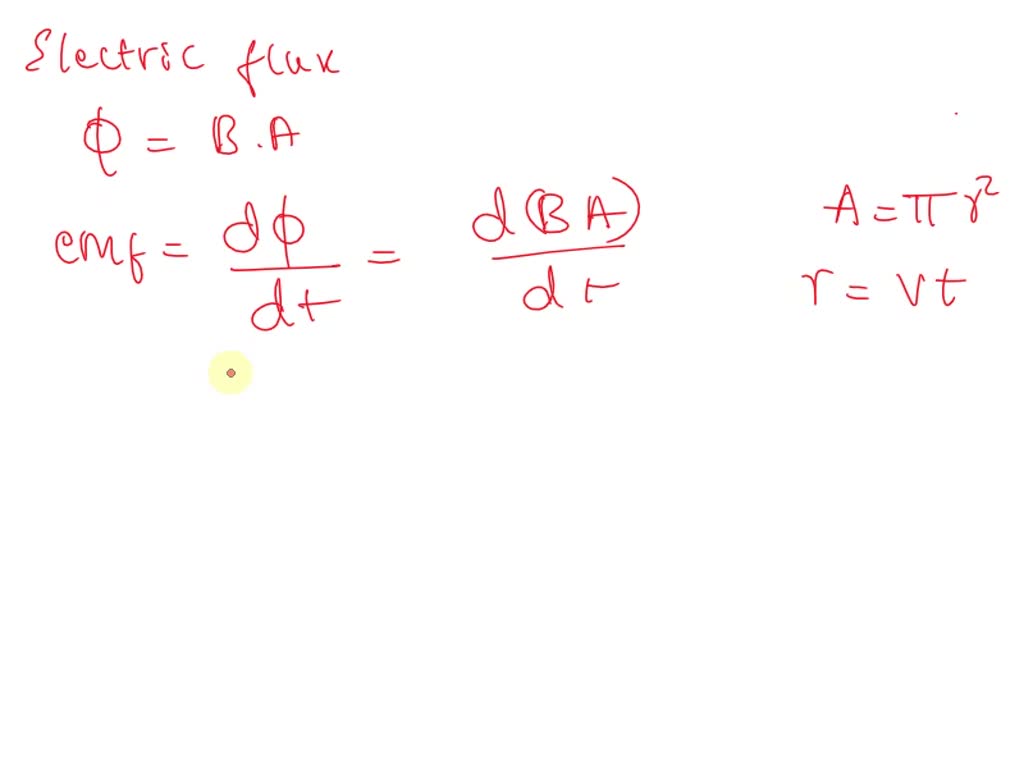 Electric flux
ϕ = B.A
emf = dϕ/dt = d(BA)/dt
A = πr²
r = vt